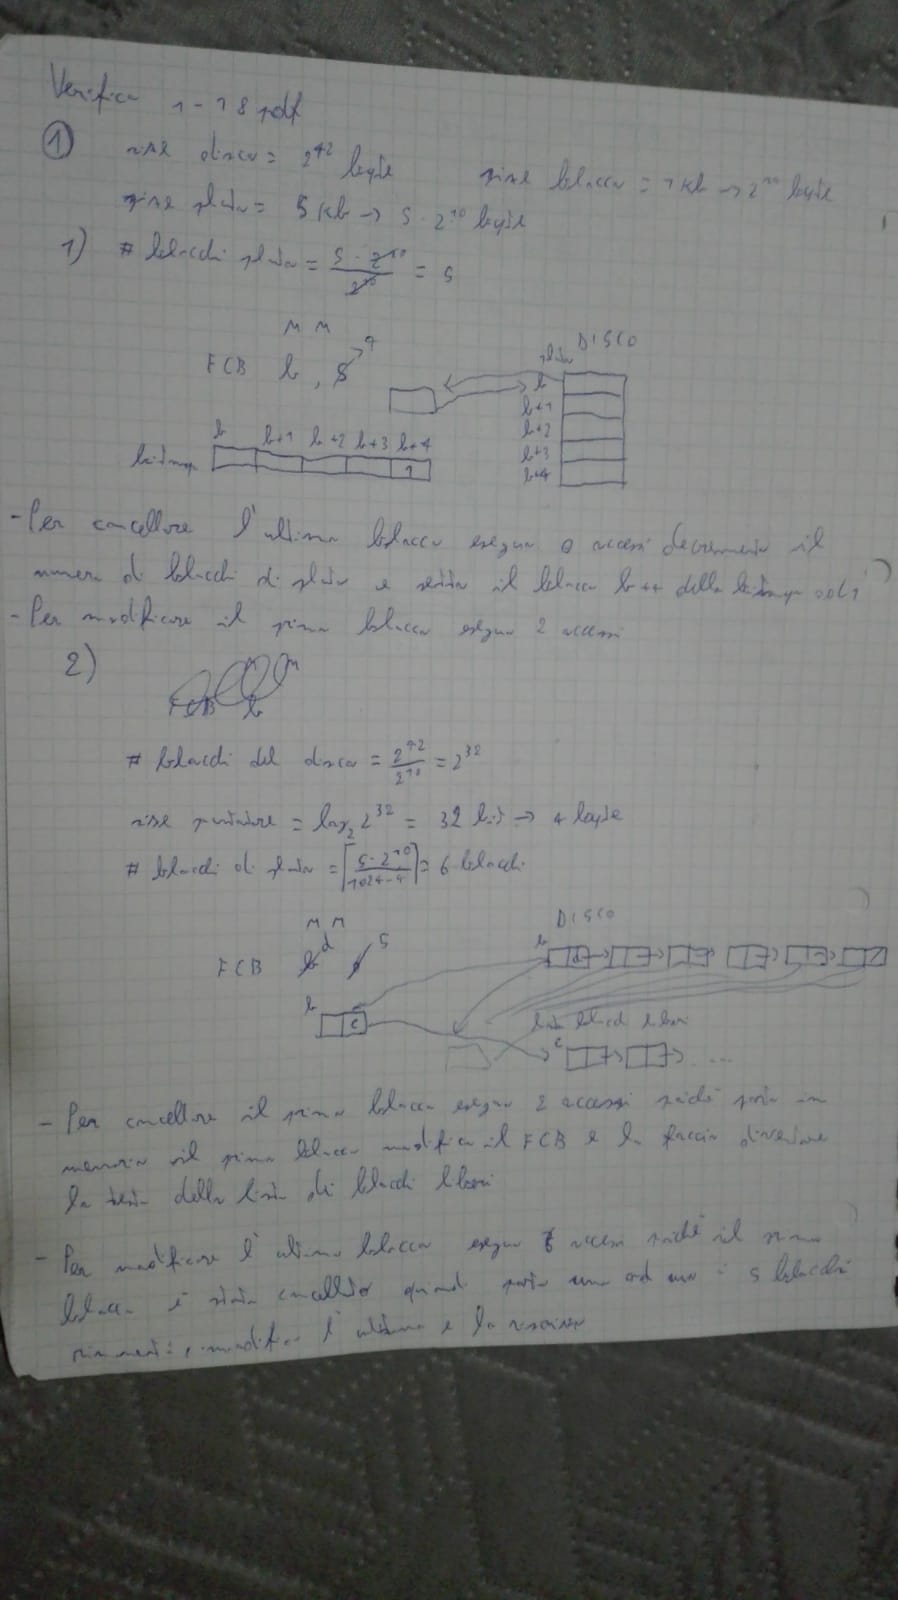 Verifica 1-18 pdf
① size disco = 2^42 byte size blocco = 1 Kb → 2^10 byte
size plain = 5 Kb → 5 · 2^10 byte
1) # blocchi plain = 5 · 2^10 / 2^10 = 5
M M DISCO
FCB b , 5 4 plain b
b+1
b+2
b+3
b+4
b b+1 b+2 b+3 b+4
bitmap 1
- Per cancellare l'ultimo blocco eseguo 0 accessi decremento il
numero di blocchi di plain e setto il blocco b+4 della bitmap ad 1
- Per modificare il primo blocco eseguo 2 accessi
2)
FCB b
# blocchi del disco = 2^42 / 2^10 = 2^32
size puntatore = log₂ 2^32 = 32 bit → 4 byte
# blocchi di plain = ⌈5·2^10 / 1024-4⌉ = 6 blocchi
M M DISCO
FCB b d 6 5 b d
b c
lista blocchi liberi
c ...
- Per cancellare il primo blocco eseguo 2 accessi poiché porto in
memoria il primo blocco modifico il FCB e lo faccio diventare
la testa della lista di blocchi liberi
- Per modificare l'ultimo blocco eseguo 6 accessi poiché il primo
blocco è stato cancellato quindi porto uno ad uno i 5 blocchi
rimanenti, modifico l'ultimo e lo riscrivo